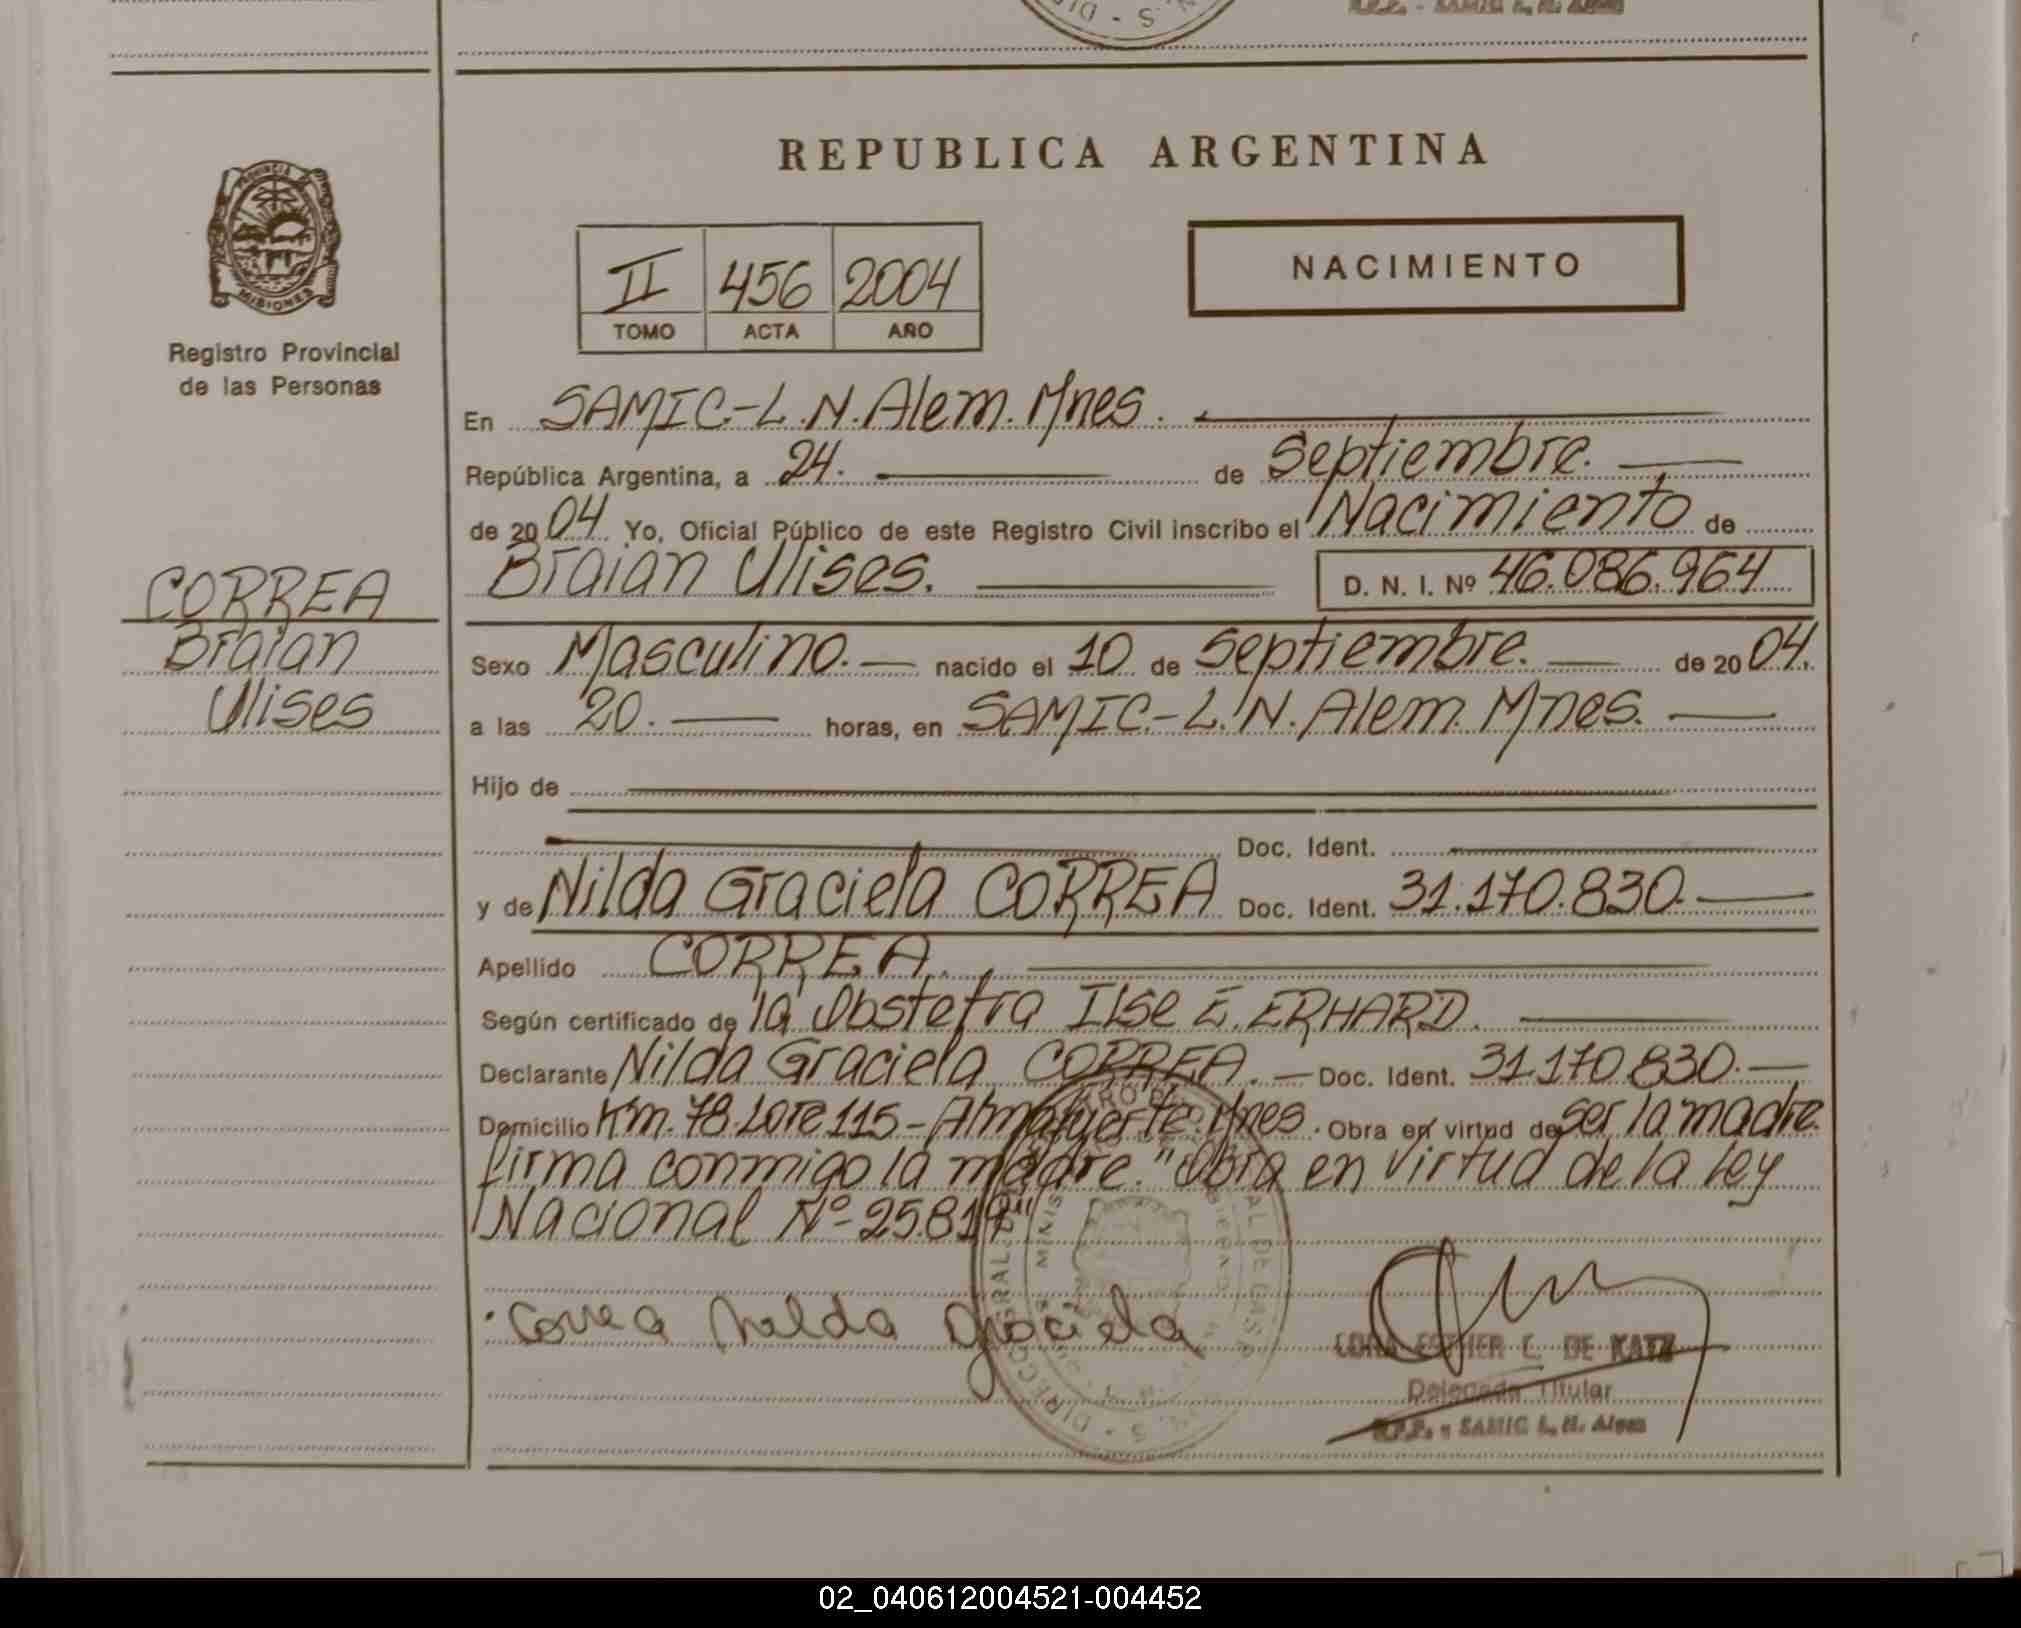 REPUBLICA ARGENTINA
PROVINCIA DE
MISIONES
Registro Provincial
de las Personas
CORREA
Braian
Ulises
II 456 2004
TOMO ACTA AÑO
NACIMIENTO
En SAMIC-L.N.Alem.Mnes.
República Argentina, a 24. de Septiembre.
de 2004 Yo, Oficial Público de este Registro Civil inscribo el Nacimiento de
Braian Ulises. D. N. I. Nº 46.086.964
Sexo Masculino. nacido el 10 de Septiembre. de 2004.
a las 20. horas, en SAMIC-L.N.Alem.Mnes.
Hijo de
Doc. Ident.
y de Nilda Graciela CORREA Doc. Ident. 31.170.830.
Apellido CORREA.
Según certificado de la Obstetra Ilse E. ERHARD.
Declarante Nilda Graciela CORREA. Doc. Ident. 31.170.830.
Domicilio Km.78.Lote 115-Almafuerte.Mnes. Obra en virtud de ser la madre.
firma conmigo la madre. "Obra en virtud de la ley
Nacional Nº-25.819"
Correa Nelda Graciela
ESTHER C. DE KATZ
Delegada Titular
R.P.P. - SAMIC L. N. Alem
02_040612004521-004452